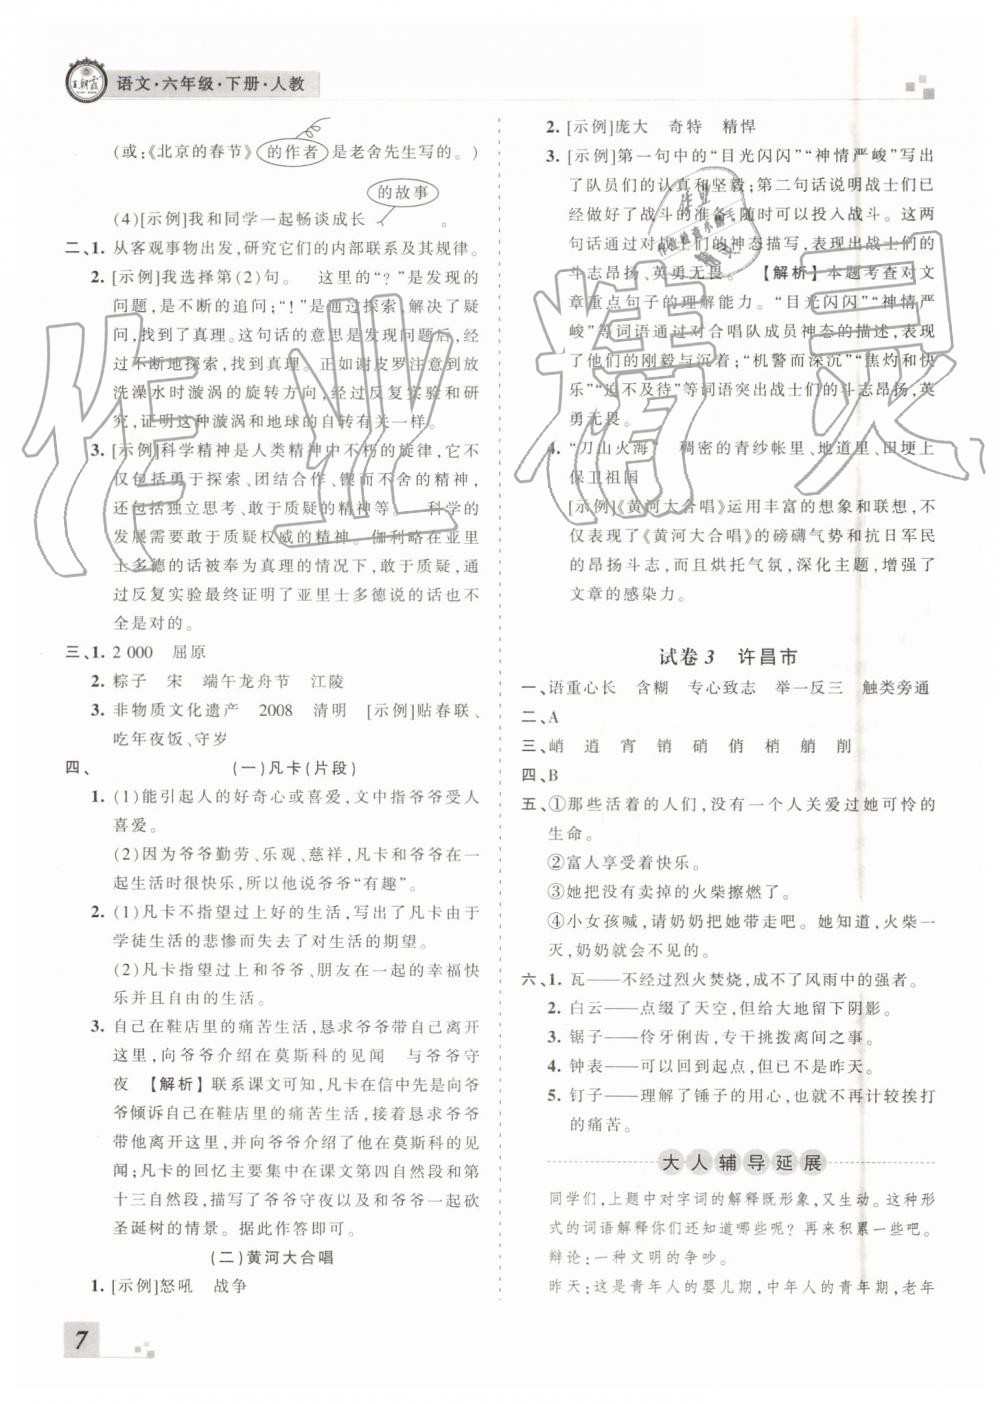 王朝霞
语文·六年级·下册·人教
(或:《北京的春节》的作者是老舍先生写的。)
的故事
(4)[示例]我和同学一起畅谈成长 。
二、1. 从客观事物出发,研究它们的内部联系及其规律。
2. [示例]我选择第(2)句。 这里的“?”是发现的
问题,是不断的追问;“!”是过探索,解决了疑
问,找到了真理。这句话的意思是发现问题后,经
过不断地探索,找到真理。正如谢皮罗注意到放
洗澡水时漩涡的旋转方向,经过反复实验和研
究,证明这种漩涡和地球的自转有关一样。
3. [示例]科学精神是人类精神中不朽的旋律,它不
仅包括勇于探索、团结合作、锲而不舍的精神,
还包括独立思考、敢于质疑的精神等。 科学的
发展需要敢于质疑权威的精神。伽利略在亚里
士多德的话被奉为真理的情况下,敢于质疑,通
过反复实验最终证明了亚里士多德说的话也不
全是对的。
三、1. 2 000 屈原
2. 粽子 宋 端午龙舟节 江陵
3. 非物质文化遗产 2008 清明 [示例]贴春联、
吃年夜饭、守岁
四、 (一)凡卡(片段)
1. (1)能引起人的好奇心或喜爱,文中指爷爷受人
喜爱。
(2)因为爷爷勤劳、乐观、慈祥,凡卡和爷爷在一
起生活时很快乐,所以他说爷爷“有趣”。
2. (1)凡卡不指望过上好的生活,写出了凡卡由于
学徒生活的悲惨而失去了对生活的期望。
(2)凡卡指望过上和爷爷、朋友在一起的幸福快
乐并且自由的生活。
3. 自己在鞋店里的痛苦生活,恳求爷爷带自己离开
这里,向爷爷介绍在莫斯科的见闻 与爷爷守
夜 【解析】联系课文可知,凡卡在信中先是向爷
爷倾诉自己在鞋店里的痛苦生活,接着恳求爷爷
带他离开这里,并向爷爷介绍了他在莫斯科的见
闻;凡卡的回忆主要集中在课文第四自然段和第
十三自然段,描写了爷爷守夜以及和爷爷一起砍
圣诞树的情景。据此作答即可。
(二)黄河大合唱
1. [示例]怒吼 战争
7
2. [示例]庞大 奇特 精悍
3. [示例]第一句中的“目光闪闪”“神情严峻”写出
了队员们的认真和坚毅;第二句话说明战士们已
经做好了战斗的准备,随时可以投入战斗。这两
句话通过对战士们的神态描写,表现出战士们的
斗志昂扬、英勇无畏。 【解析】本题考查对文
章重点句子的理解能力。“目光闪闪”“神情严
峻”等词语通过对合唱队成员神态的描述,表现
了他们的刚毅与沉着;“机警而深沉”“焦灼和快
乐”“迫不及待”等词语突出战士们的斗志昂扬,英
勇无畏。
4. “刀山火海” 稠密的青纱帐里、地道里、围埂上
保卫祖国
[示例]《黄河大合唱》运用丰富的想象和联想,不
仅表现了《黄河大合唱》的磅礴气势和抗日军民
的昂扬斗志,而且烘托气氛,深化主题,增强了
文章的感染力。
试卷3 许昌市
一、语重心长 含糊 专心致志 举一反三 触类旁通
二、A
三、峭 逍 宵 销 硝 俏 梢 艄 削
四、B
五、①那些活着的人们,没有一个人关爱过她可怜的
生命。
②富人享受着快乐。
③她把没有卖掉的火柴擦燃了。
④小女孩喊,请奶奶把她带走吧。她知道,火柴一
灭,奶奶就会不见的。
六、1. 瓦——不经过烈火焚烧,成不了风雨中的强者。
2. 白云——点缀了天空,但给大地留下阴影。
3. 锯子——伶牙俐齿,专干挑拨离间之事。
4. 钟表——可以回到起点,但已不是昨天。
5. 钉子——理解了锤子的用心,也就不再计较挨打
的痛苦。
大人辅导延展
同学们,上题中对字词的解释既形象,又生动。这种形
式的词语解释你们还知道哪些呢?再来积累一些吧。
辩论:一种文明的争吵。
昨天:这是青年人的婴儿期,中年人的青年期,老年
作业精灵